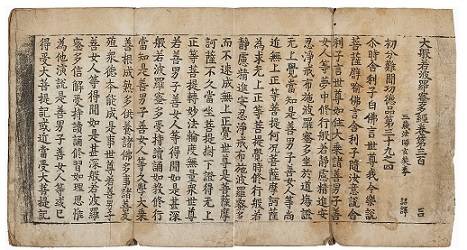 大般若波羅蜜多經卷第三百
三藏法師玄奘奉 詔譯
初分難聞功德品第三十九之四
尒時舍利子白佛言世尊我今樂說
菩薩譬喻佛言舍利子隨汝意說舍
利子言世尊如住大乘諸善男子善
女人等夢中修行般若靜慮精進安
忍淨戒布施波羅蜜多坐於道場證
无上覺當知是善男子善女人等尚
近無上正等菩提何況菩薩摩訶薩
為求无上正等菩提覺時修行般若
靜慮精進安忍淨戒布施波羅蜜多
而不速成無上正覺世尊是菩薩摩
訶薩不久當坐菩提樹下證得无上
正等菩提轉妙法輪度無量眾世尊
若善男子善女人等得聞如是甚深
般若波羅蜜多受持讀誦如教修行
當知是善男子善女人等久學大乘
善根成熟多供養諸佛多事諸善友
殖眾德本能成是事世尊若善男子
善女人等得聞如是甚深般若波羅
蜜多信解受持讀誦修習如理思惟
為他演說是善男子善女人等或已
得受大菩提記或近當受大菩提記